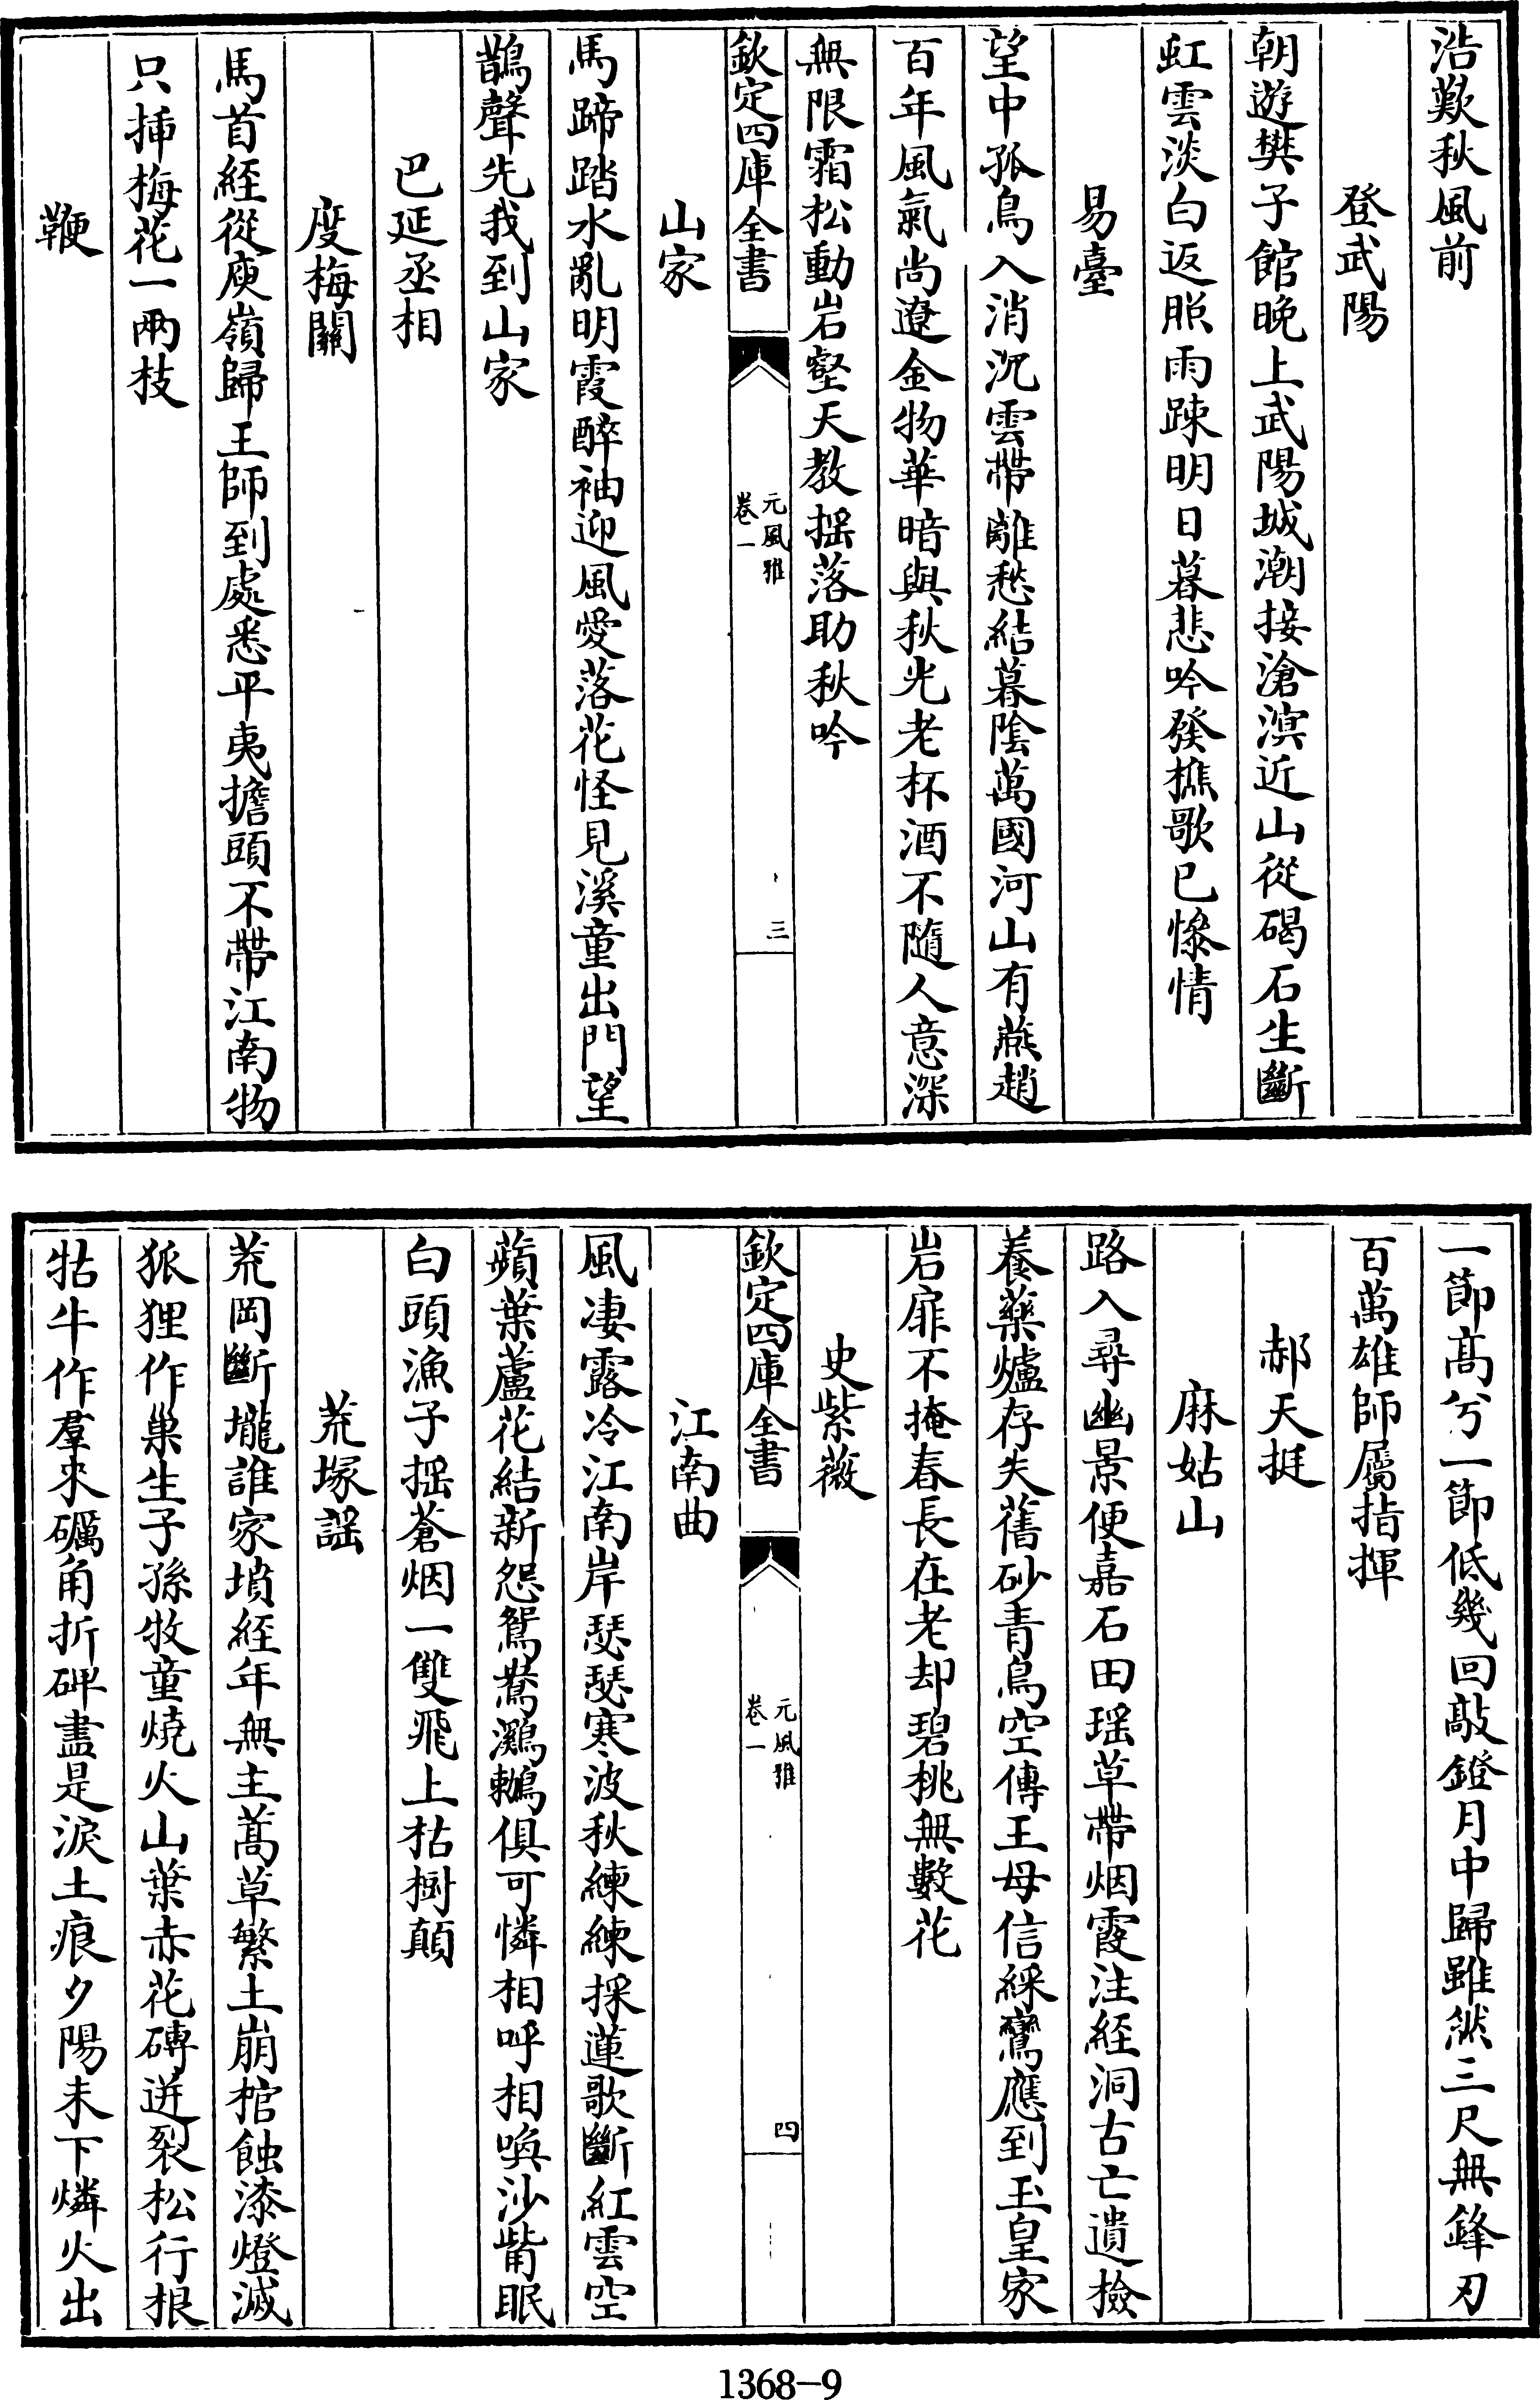 浩歎秋風前
登武陽
朝遊樊子館晚上武陽城潮接滄溟近山從碣石生斷
虹雲淡白返照雨疎明日暮悲吟發樵歌已慘情
易臺
望中孤鳥入消沉雲帶離愁結暮陰萬國河山有燕趙
百年風氣尚遼金物華暗與秋光老杯酒不隨人意深
無限霜松動岩壑天教揺落助秋吟
欽定四庫全書
元風雅
卷一
三
山家
馬蹄踏水亂明霞醉袖迎風愛落花怪見溪童出門望
鵲聲先我到山家
巴延丞相
度梅關
馬首經從庾嶺歸王師到處悉平夷擔頭不帶江南物
只挿梅花一兩枝
鞭
一節髙兮一節低幾回敲鐙月中歸雖然三尺無鋒刃
百萬雄師屬指揮
郝天挺
麻姑山
路入尋幽景便嘉石田瑶草帶烟霞注經洞古亡遺撿
養藥爐存失舊砂青鳥空傳王母信綵鸞應到玉皇家
岩扉不掩春長在老却碧桃無數花
史紫薇
欽定四庫全書
元風雅
卷一
四
江南曲
風凄露冷江南岸瑟瑟寒波秋練練採蓮歌斷紅雲空
蘋葉蘆花結新怨鴛鴦鸂鶒俱可憐相呼相喚沙觜眠
白頭漁子揺蒼烟一雙飛上枯樹顛
荒塚謡
荒岡斷壠誰家墳經年無主蒿草繁土崩棺蝕漆燈滅
狐狸作巢生子孫牧童燒火山葉赤花磚迸裂松行根
牯牛作羣來礪角折碑盡是淚土痕夕陽未下燐火出
1368-9